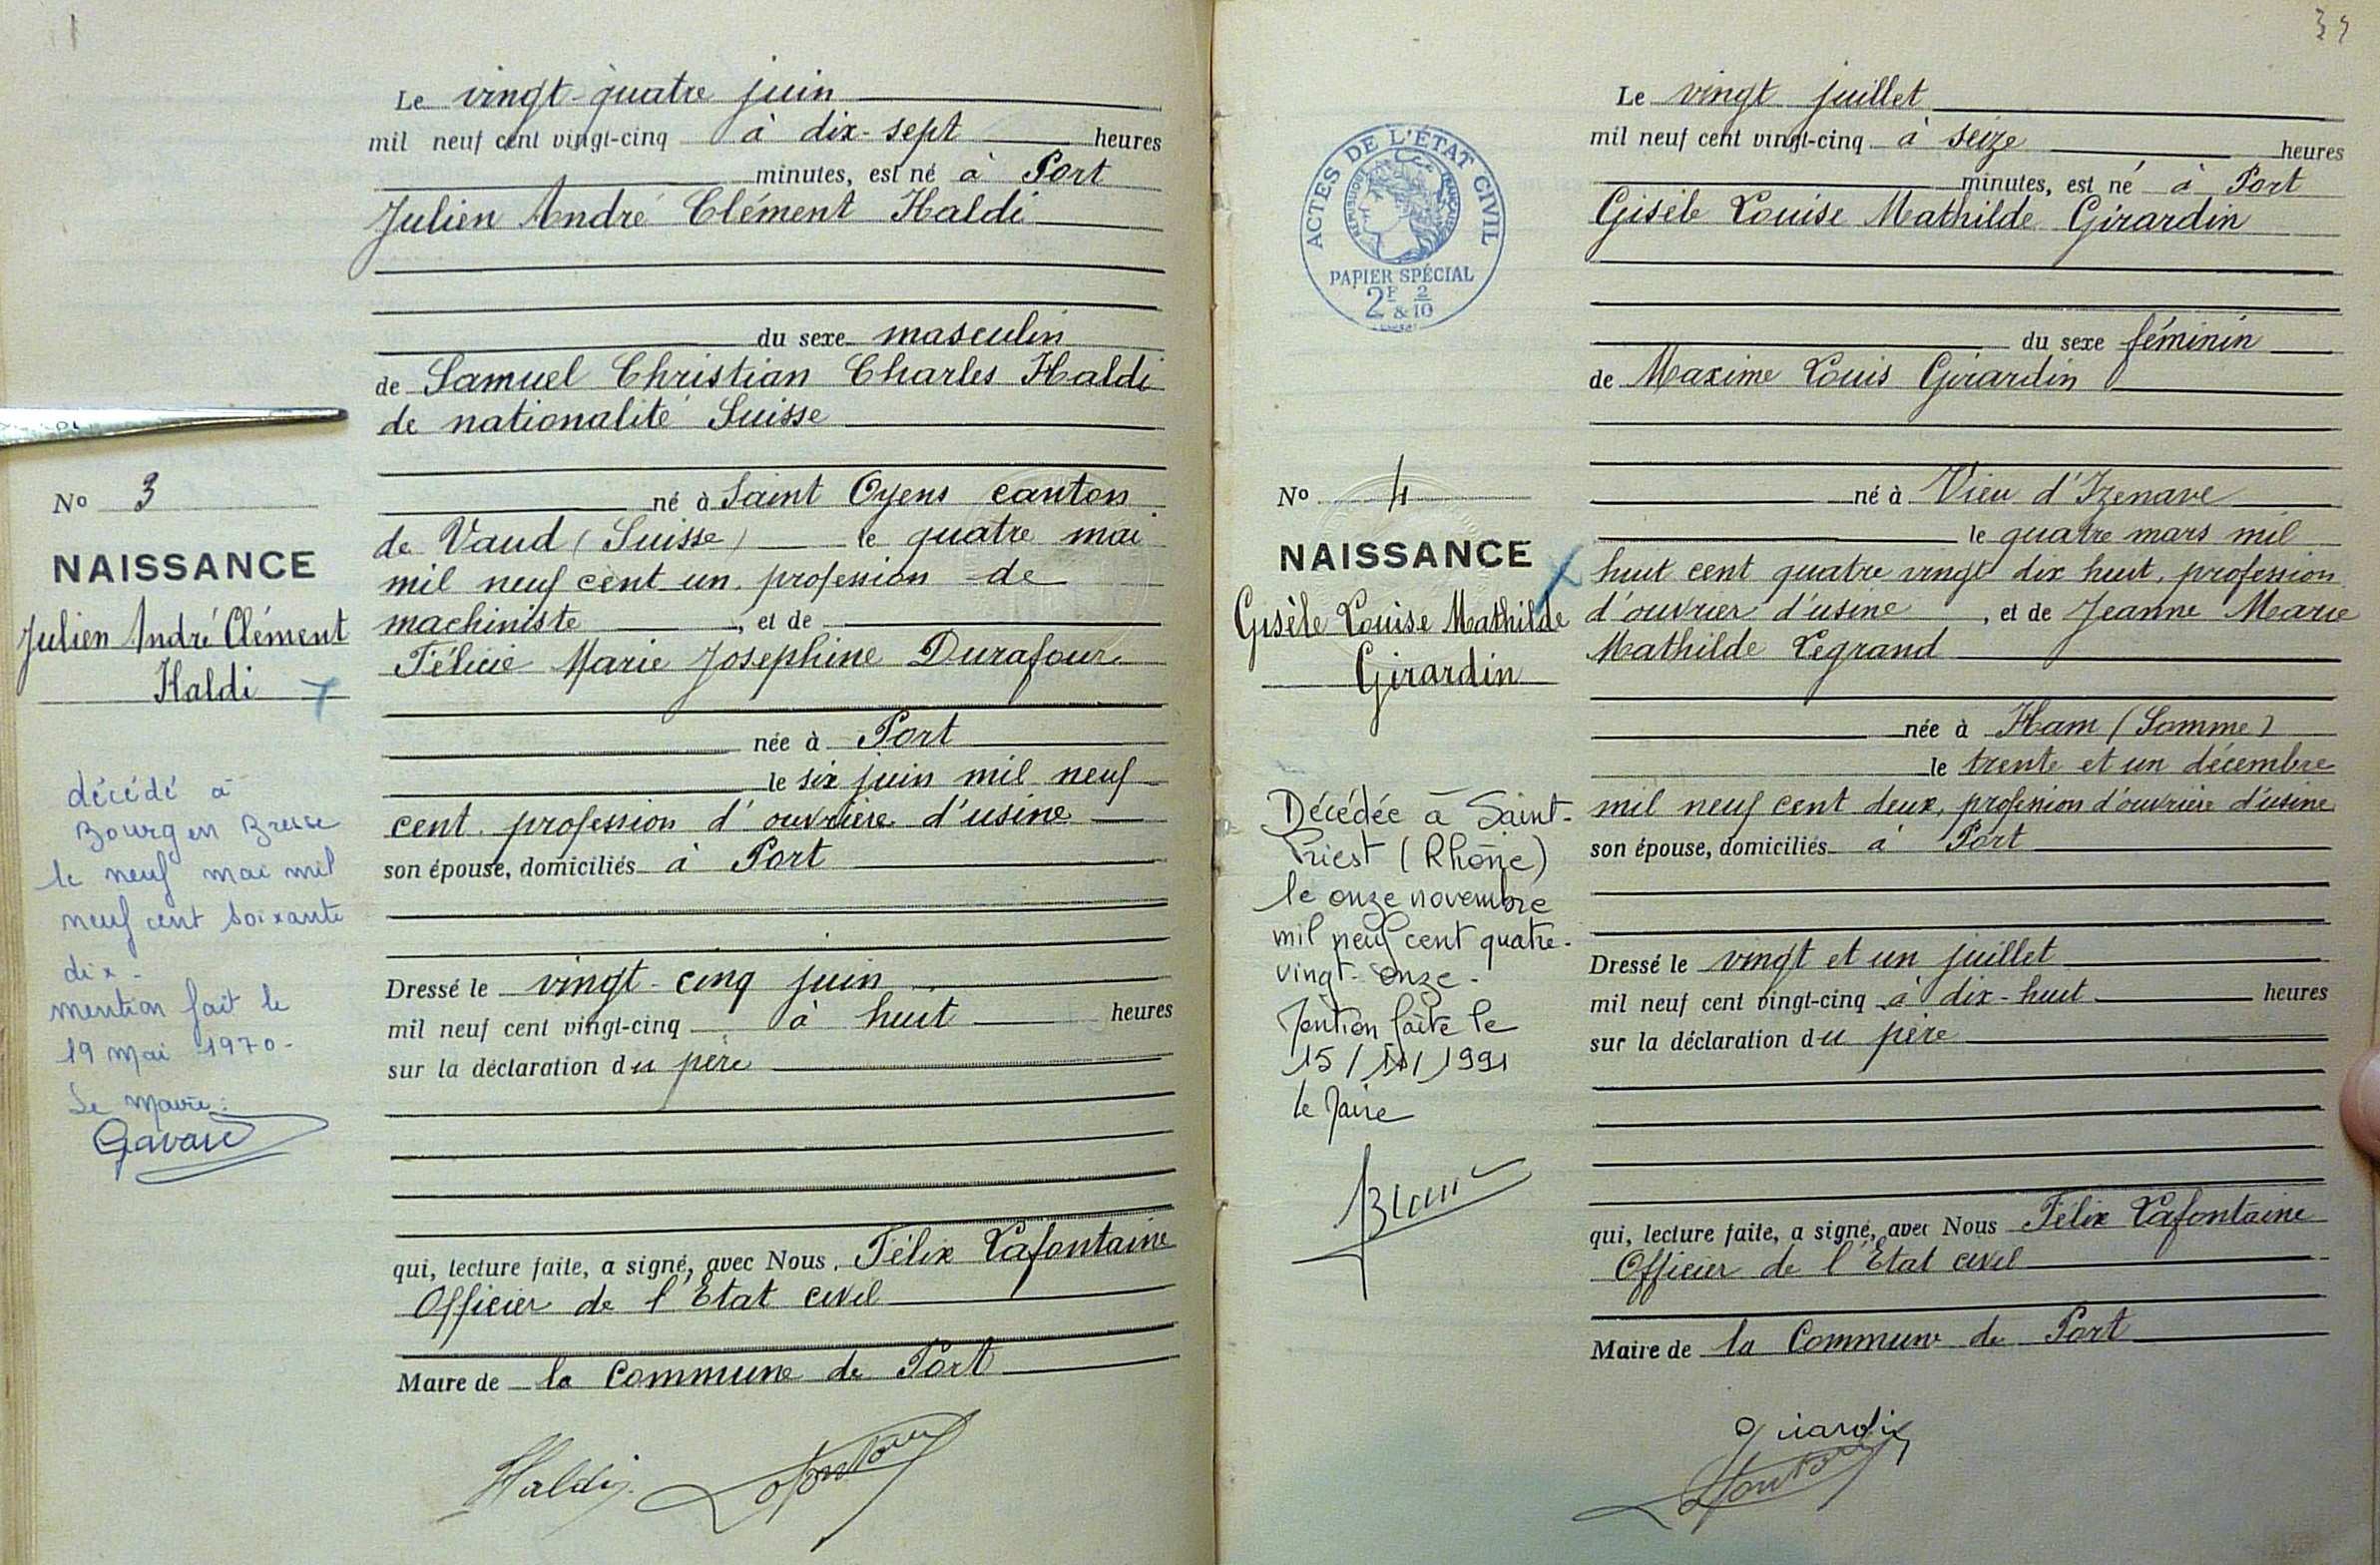 Le vingt-quatre juin
mil neuf cent vingt-cinq à dix-sept heures
minutes, est né à Port
Julien André Clément Haldi
du sexe masculin
de Samuel Christian Charles Haldi
de nationalité Suisse
né à Saint Oyens canton
de Vaud (Suisse) le quatre mai
mil neuf cent un, profession de
machiniste, et de
Félicie Marie Josephine Durafour
née à Port
le six juin mil neuf
cent. profession d'ouvrière d'usine
son épouse, domiciliés à Port
Dressé le vingt-cinq juin
mil neuf cent vingt-cinq à huit heures
sur la déclaration du père
qui, lecture faite, a signé, avec Nous, Félix Lafontaine
Officier de l'Etat civil
Maire de la Commune de Port
Haldi
No 3
NAISSANCE
Julien André Clément
Haldi
décédé à
Bourg en Bresse
le neuf mai mil
neuf cent soixante
dix-
mention fait le
19 mai 1970-
Le Maire:
Gavard
34
Le vingt juillet
mil neuf cent vingt-cinq à seize heures
minutes, est né à Port
Gisèle Louise Mathilde Girardin
du sexe féminin
de Maxime Louis Girardin
né à Vieu d'Izenave
le quatre mars mil
huit cent quatre vingt dix huit, profession
d'ouvrier d'usine, et de Jeanne Marie
Mathilde Legrand
née à Ham (Somme)
le trente et un décembre
mil neuf cent deux, profession d'ouvrière d'usine
son épouse, domiciliés à Port
Dressé le vingt et un juillet
mil neuf cent vingt-cinq à dix-huit heures
sur la déclaration du père
qui, lecture faite, a signé, avec Nous Félix Lafontaine
Officier de l'Etat civil
Maire de la Commune de Port
Girardin
ACTES DE L'ÉTAT CIVIL
RÉPUBLIQUE FRANÇAISE
PAPIER SPÉCIAL
2F & 2/10
No 4
NAISSANCE
Gisèle Louise Mathilde
Girardin
Décédée à Saint-
Priest (Rhône)
le onze novembre
mil neuf cent quatre-
vingt-onze-
Mention faite le
15/11/1991
le Maire